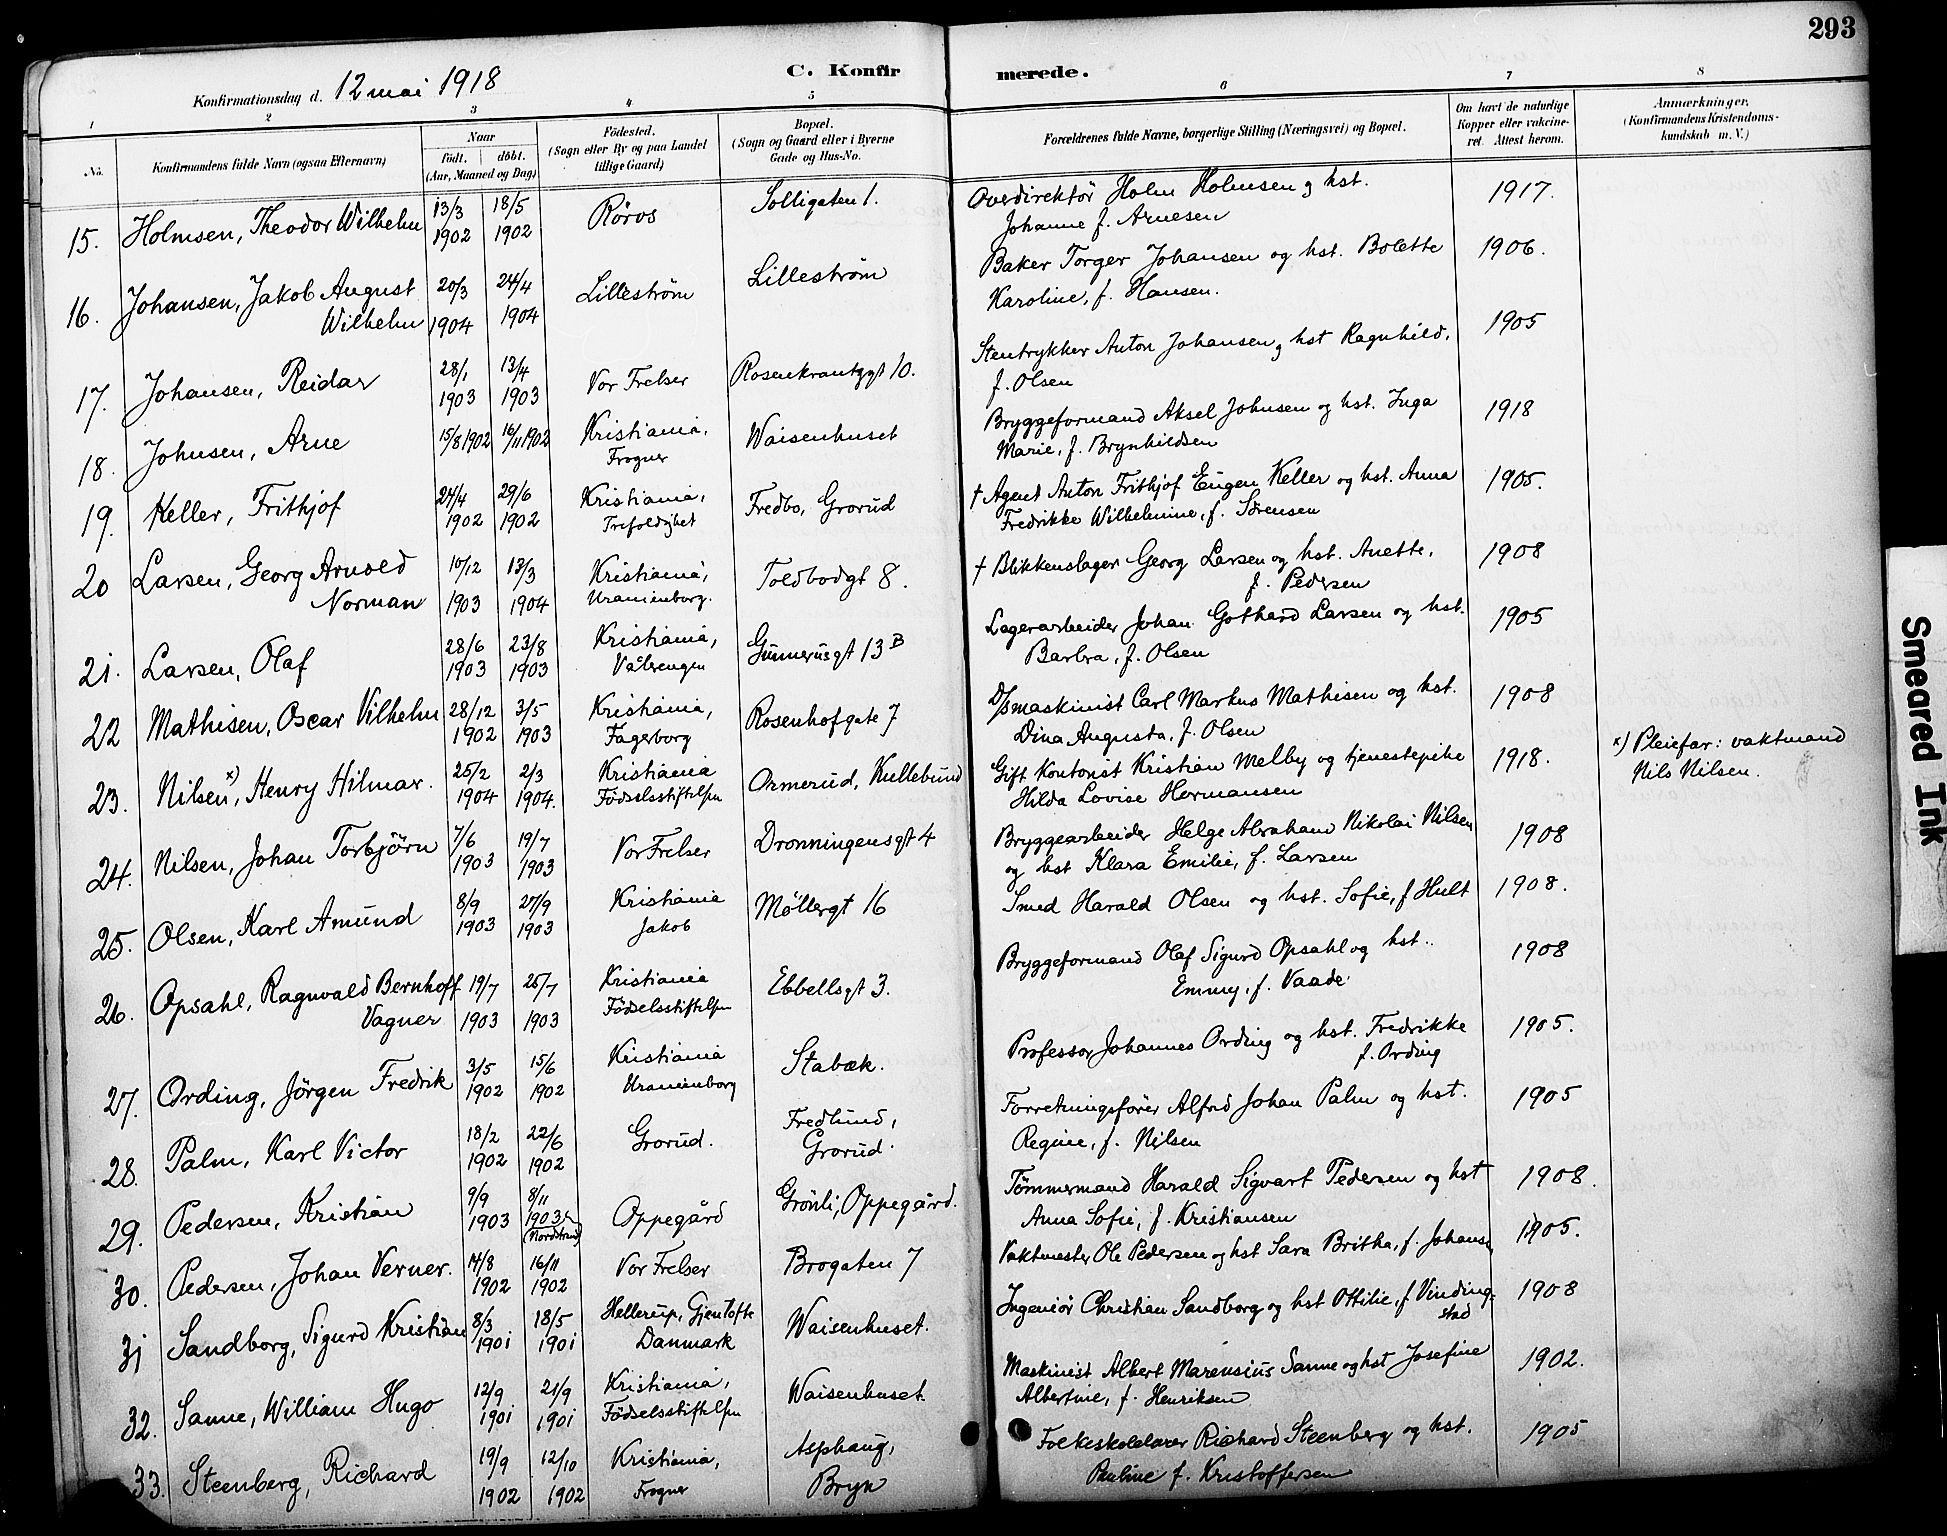 293
C. Konfirmerede.
Konfirmationsdag d. 12 mai 1918
1 2 3 4 5 6 7 8
No. Konfirmandens fulde Navn (ogsaa Efternavn) Naar født. døbt. (Aar, Maaned og Dag) Fødested. (Sogn eller By og paa Landet tillige Gaard) Bopæl. (Sogn og Gaard eller i Byerne Gade og Hus-No. Forældrenes fulde Navne, borgerlige Stilling (Næringsvei) og Bopæl. Om havt de naturlige Kopper eller vakcineret. Attest herom. Anmærkninger. (Konfirmandens Kristendomskundskab m. V.)
15. Holmsen, Theodor Wilhelm 13/3 1902 18/5 1902 Röros Solligaten 1. Overdirektör Holm Holmsen og hst. Johanne f. Arnesen 1917.
16. Johansen, Jakob August Wilhelm 20/3 1904 24/4 1904 Lilleström Lilleström Baker Torger Johansen og hst. Bolette Karoline, f. Hansen. 1906.
17. Johansen, Reidar 28/1 1903 13/4 1903 Vor Frelser Rosenkrantzgt 10. Stentrykker Anton Johansen og hst Ragnhild, f. Olsen 1905
18. Johnsen, Arne 15/8 1902 16/11 1902 Kristiania, Frogner Waisenhuset Bryggeformand Aksel Johnsen og hst. Inga Marie, f. Brynhildsen 1918
19. Keller, Frithjof 24/4 1902 29/6 1902 Kristiania, Trefoldighet Fredbo, Grorud † Agent Anton Frithjof Eugen Keller og hst. Anna Fredrikke Wilhelmine, f. Sörensen 1905.
20 Larsen, Georg Arnold Norman 10/12 1903 13/3 1904 Kristiania, Uranienborg. Toldbodgt 8. † Blikkenslager Georg Larsen og hst. Anette, f. Pedersen 1908
21. Larsen, Olaf 28/6 1903 23/8 1903 Kristiania, Vålerengen Gunnerusgt 13 B Lagerarbeider Johan Gothard Larsen og hst. Barbra, f. Olsen 1905
22 Mathisen, Oscar Vilhelm 28/12 1902 3/5 1903 Kristiania, Fagerborg Rosenhofgate 7 D/smaskinist Carl Markus Mathisen og hst. Dina Augusta, f. Olsen 1908
23. Nilsen x), Henry Hilmar. 25/2 1904 2/3 1904. Kristiania Födselsstiftelsen Ormerud, Kullebund Gift Kontorist Kristian Melby og tjenestepike Hilda Lovise Hermansen 1918. x) Pleiefar: vaktmand Nils Nilsen.
24. Nilsen, Johan Torbjörn 7/6 1903 19/7 1903 Vor Frelser Dronningensgt 4 Bryggearbeider Helge Abraham Nikolai Nilsen og hst Klara Emilie, f. Larsen 1908
25. Olsen, Karl Amund 8/9 1903 27/9 1903 Kristiania Jakob Møllergt 16 Smed Harald Olsen og hst. Sofie, f Hult 1908.
26. Opsahl, Ragnvald Bernhoff Vagner 19/7 1903 25/7 1903 Kristiania Födselsstiftelsen Ebbellsgt 3. Bryggeformand Olaf Sigurd Opsahl og hst. Emmy, f. Vaade 1908
27. Ording, Jörgen Fredrik 3/5 1902 15/6 1902 Kristiania Uranienborg Stabæk. Professor Johannes Ording og hst. Fredrikke f. Ording 1905.
28. Palm, Karl Victor 18/2 1902 22/6 1902 Grorud. Fredlund, Grorud. Forretningsförer Alfred Johan Palm og hst. Regine, f. Nilsen 1905
29. Pedersen, Kristian 9/9 1903 8/11 1903 (Nordstrand) Oppegård Grönli, Oppegård. Tömmermand Harald Sigvart Pedersen og hst Anna Sofie, f. Kristiansen 1908.
30. Pedersen, Johan Verner. 14/8 1902 16/11 1902 Vor Frelser Brogaten 7 Vaktmester Ole Pedersen og hst Sara Britha, f. Johansen 1905.
31 Sandborg, Sigurd Kristian 8/3 1901 18/5 1901 Hellerup, Gjentofte Danmark Waisenhuset. Ingeniör Christian Sandborg og hst Ottilie, f. Vindingstad 1908
32. Sanne, William Hugo 12/9 1901 21/9 1901 Kristiania, Födselsstiftelsen Waisenhuset. Maskinist Albert Marensius Sanne og hst Josefine Albertine, f. Henriksen 1902.
33. Steenberg, Richard 19/9 1902 12/10 1902 Kristiania, Frogner Asphaug, Bryn Folkeskolelærer Richard Steenberg og hst. Pauline f. Kristoffersen 1905
Smeared Ink